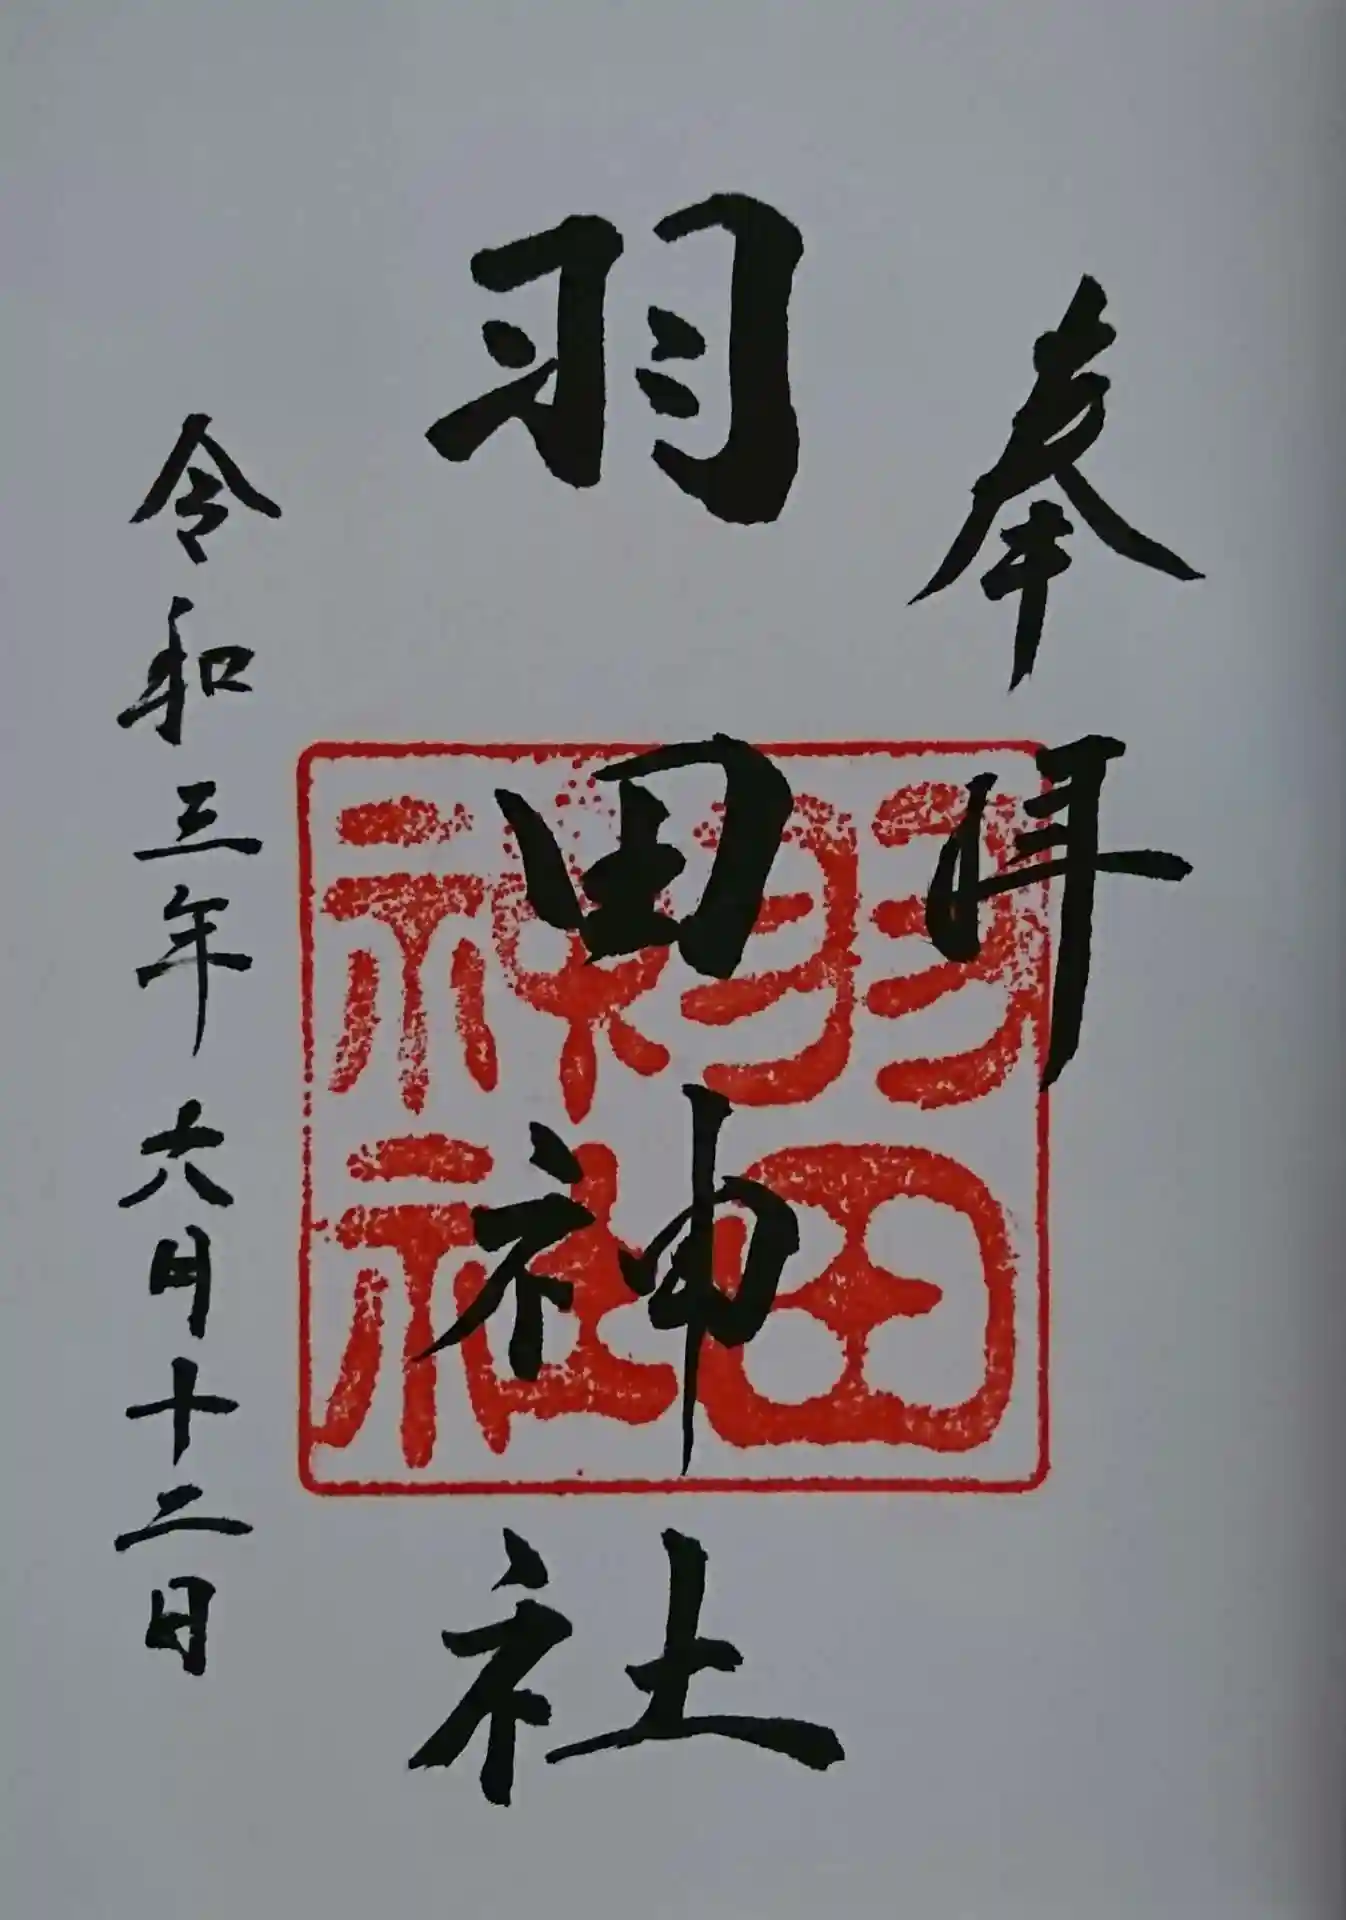 奉拝
羽田神社
羽田神社
令和三年六月十二日